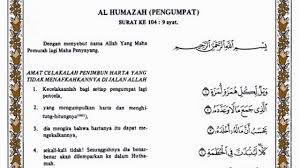 AL HUMAZAH (PENGUMPAT)
SURAT KE 104 : 9 ayat.
Dengan menyebut nama Allah Yang Maha
Pemurah lagi Maha Penyayang.
بِسْمِ اللَّهِ الرَّحْمَٰنِ الرَّحِيمِ
AMAT CELAKALAH PENIMBUN HARTA YANG
TIDAK MENAFKAHKANNYA DI JALAN ALLAH
1. Kecelakaanlah bagi setiap pengumpat lagi
pencela,
2. yang mengumpulkan harta dan menghi-
tung-hitungnya
3. dia mengira bahwa hartanya itu dapat me-
ngekalkannya,
4. sekali-kali tidak! Sesungguhnya dia benar-
benar akan dilemparkan ke dalam Hutha-
وَيْلٌ لِّكُلِّ هُمَزَةٍ لُّمَزَةٍ
الَّذِي جَمَعَ مَالًا وَعَدَّدَهُ
يَحْسَبُ أَنَّ مَالَهُ أَخْلَدَهُ
كَلَّا لَيُنبَذَنَّ فِي الْحُطَمَةِ